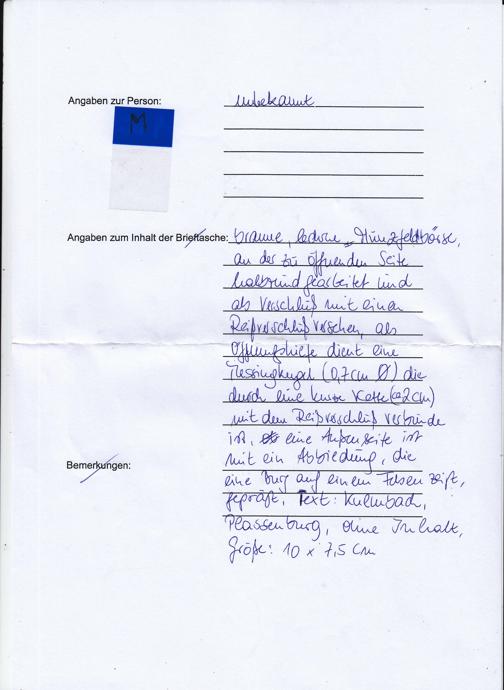 Angaben zur Person: unbekannt
M
Angaben zum Inhalt der Brieftasche: braune, lederne "Münzgeldbörse,
an der zu öffnenden Seite
halbrund gearbeitet und
als Verschluß mit einen
Reißverschluß versehen, als
Öffnungshilfe dient eine
Messingkugel (0,7cm Ø) die
durch eine kurze Kette (ca 2cm)
mit dem Reißverschluß verbunde
ist, eine Außenseite ist
mit ein Abbiedung, die
Bemerkungen:
eine Burg auf einem Felsen zeigt,
geprägt, Text: Kulmbach,
Plassenburg, ohne Inhalt,
Größe: 10 x 7,5 cm